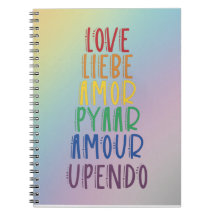 LOVE
LIEBE
AMOR
PYAAR
AMOUR
UPENDO